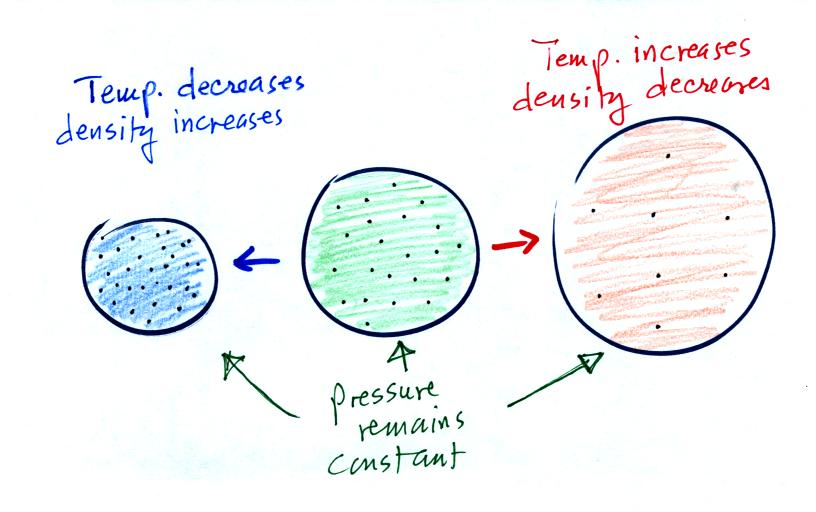 Temp. decreases
density increases
Temp. increases
density decreases
Pressure
remains
constant